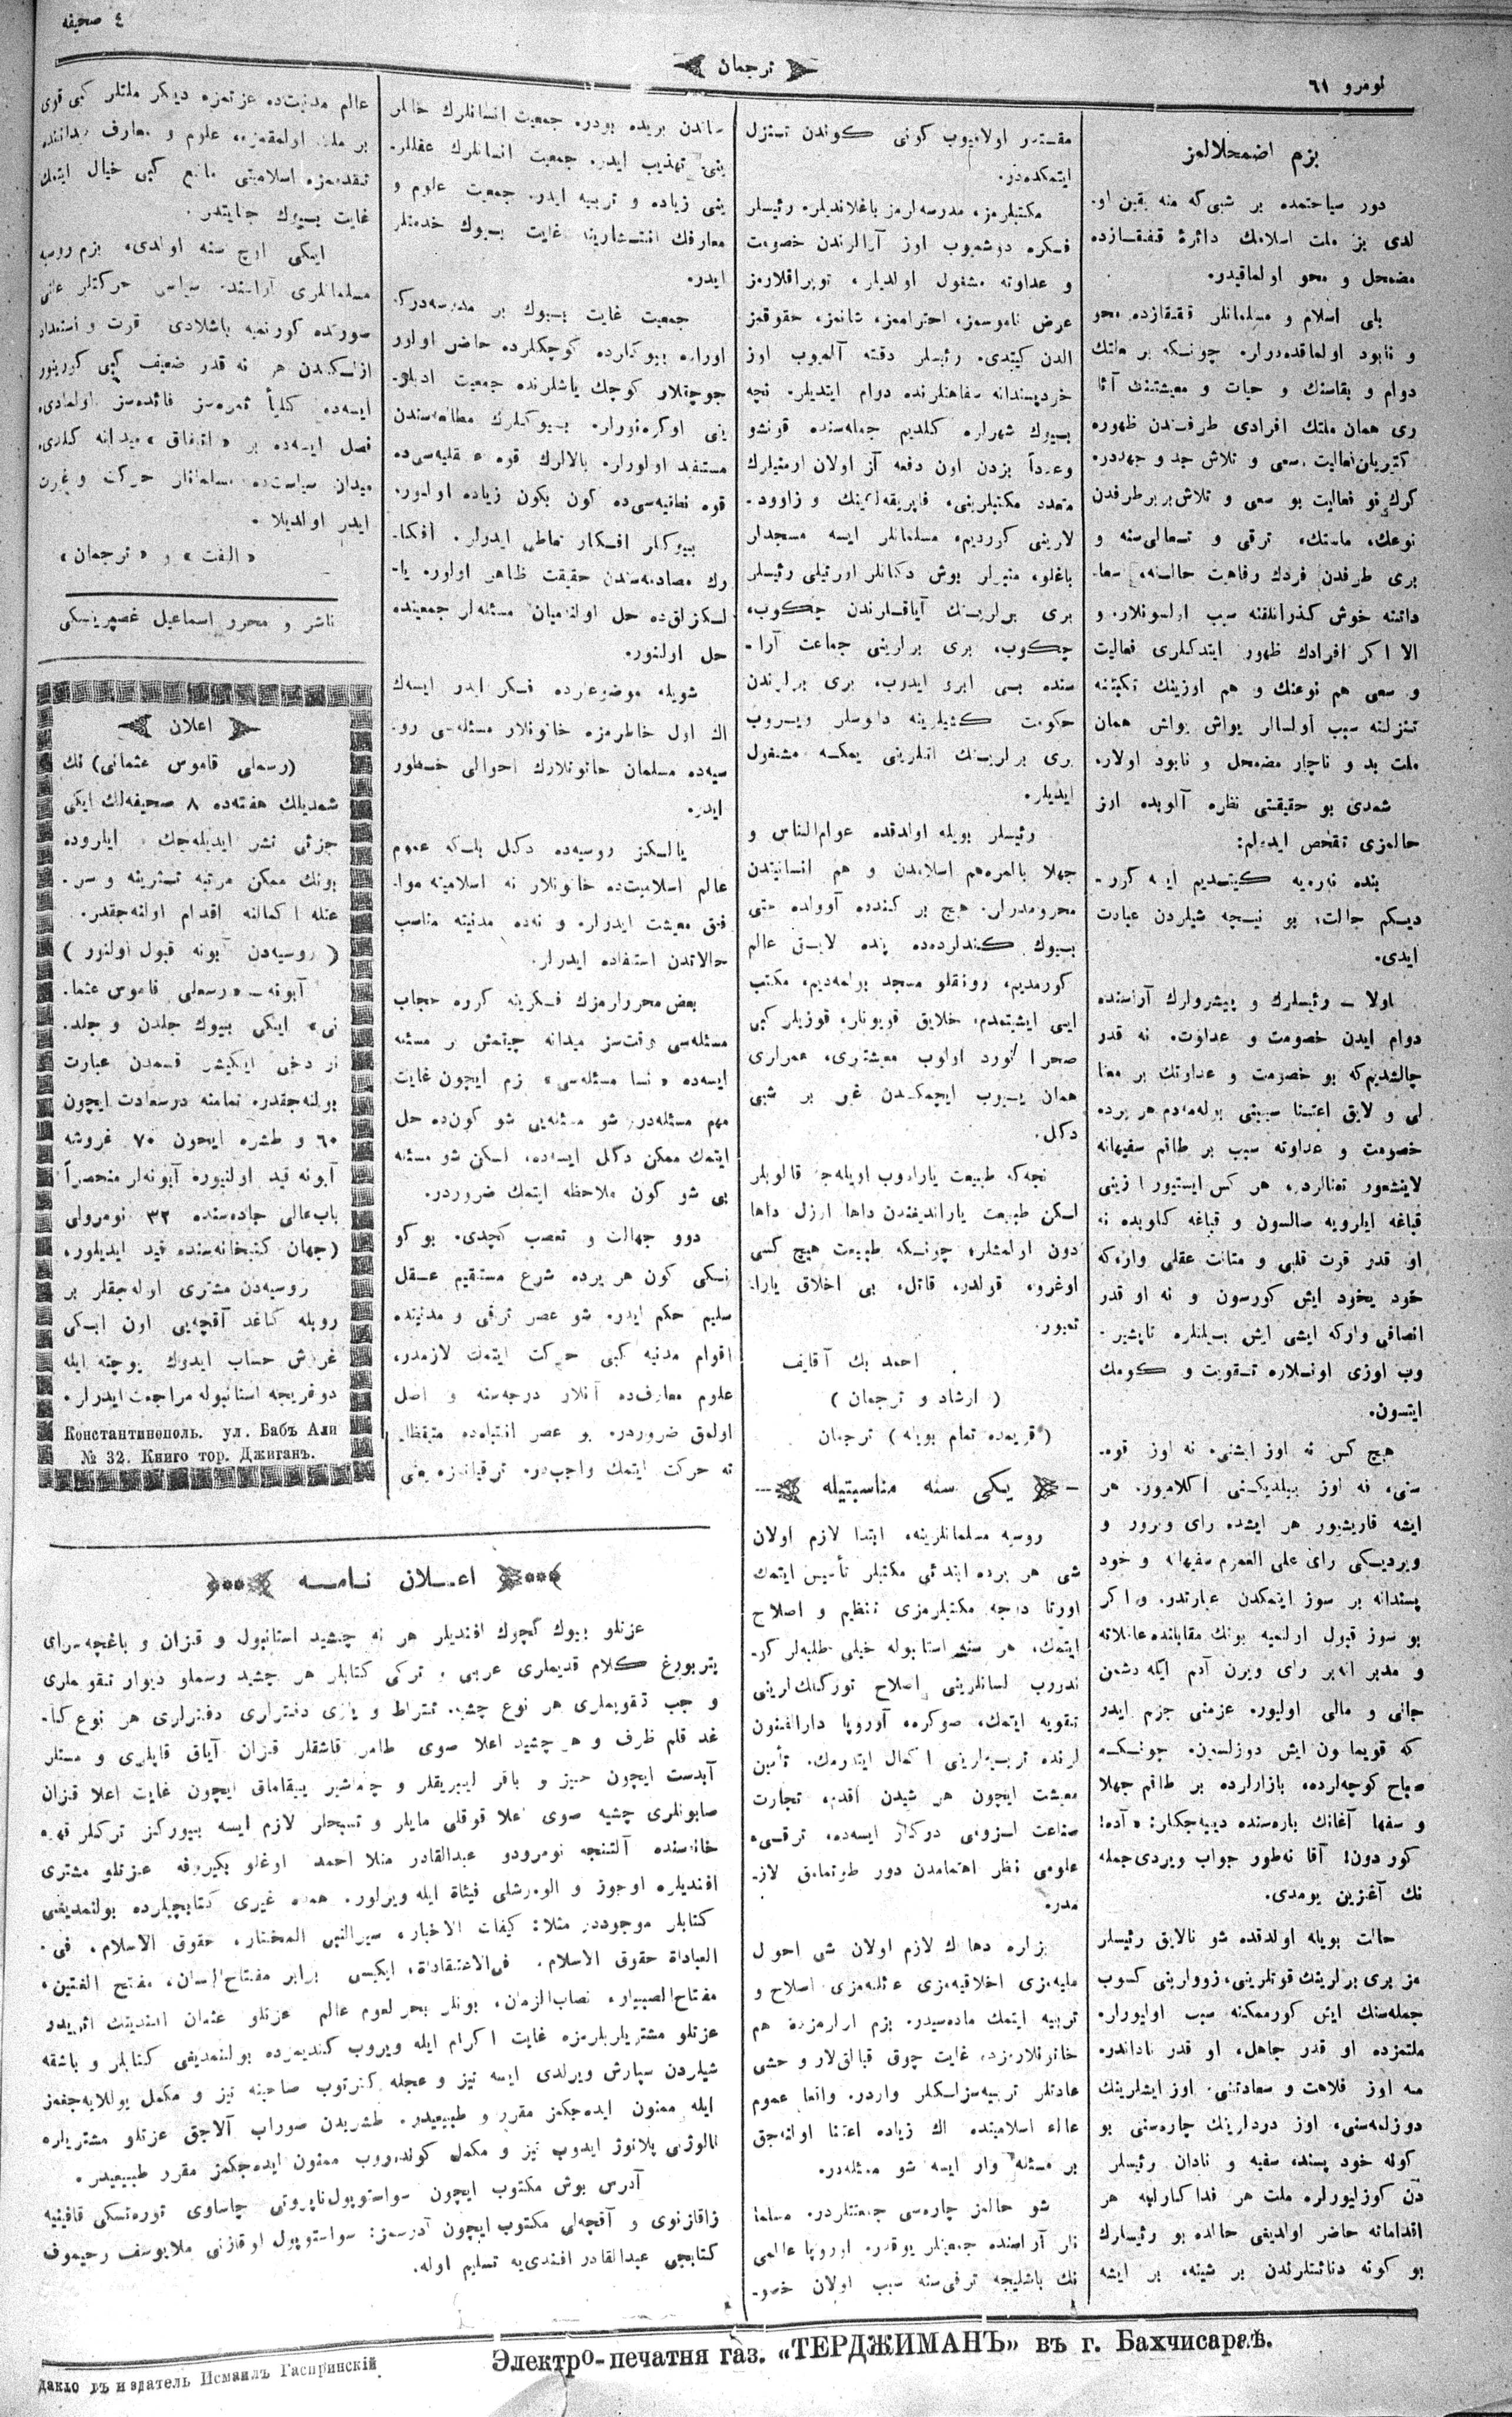 نومرو ٦١
ترجمان
٤ صحيفه
بزم اضمحلالمز
دور سياحتمده بر شبی كه منه يقين او-
لدی بز ملت اسلامك دائرۀ قفقازده
مضمحل و محو اولماقيدر.
بلی اسلام و مسلمانلر قفقازده محو
و نابود اولماقده‌درلر. چونكه بر ملتك
دوام و بقاسنك و حيات و معيشتنك آثا
ری همان ملتك افرادی طرفندن ظهوره
كتيريلن فعاليت، سعی و تلاش جد و جهددر.
كرك بو فعاليت بو سعی و تلاش بربر طرفدن
نوعك، ملتك، ترقی و تعالی‌سنه و
بری طرفدن فردك رفاهيت حالنه، سعا-
دتنه خوش كذرانلقنه سبب اولسونلار. و
الا اكر افرادك ظهور ايتدكلری فعاليت
و سعی هم نوعنك و هم اوزينك
تنزلنه سبب اولسالر يواش يواش همان
ملت بد و ناچار مضمحل و نابود اولار.
شمدی بو حقيقتی نظره آلوبده اوز
حالمزی تفحص ايدەلم:
بنده نه‌ره‌يه كيتديم ايسه كور-
ديكم حالت، بو نيچه شيلردن عبارت
ايدی.
اولا — رئيسلرك و پيشرولرك آراسنده
دوام ايدن خصومت و عداوت. نه قدر
چالشديم كه بو خصومت و عداوتك بر معنا
لی و لايق اعتنا سببنی بوله‌مادم هر يرده
خصومت و عداوته سبب بر طاقم سفيهانه
هر كس ايستيور اوزينی
قباغه ايلرويه صالسون و قباغه كلوبده نه
او قدر قوت قلبی و متانت عقلی وار كه
خود بخود ايش كورسون و نه او قدر
انصافی وار كه ايشی ايش بيلنلره تاپشير-
وب اوزی اونلاره تقويت و كومك
ايتسون.
هيچ كس نه اوز ايشنی نه اوز قوه-
سنی، نه اوز بيلديكنی اكلامور. هر
ايشه قاريشيور هر ايشده رای ويرور و
ويرديكی رای علی العموم سفيهانه و خود
پسندانه بر سوز ايتمكدن عبارتدر. و اكر
بو سوز قبول اولنميه بونك مقابلنده عاقلانه
و مدبرانه بر رای ويرن آدم ايله دشمن
جانی و مالی اوليور. عزمنی جزم ايدر
كه قويماسون ايش دوزلسون. چونكه
صباح كوچه‌لرده، بازارلرده بر طاقم جهلا
و سفها آغانك باره‌سنده ديیه‌جكلر: «آده!
كوردون! آقا نه‌طور جواب ويردی جمله
نك آغزين يومدی.
حالت بويله اولدقده شو نالايق رئيسلر
مز بری برلرينك قوتلرينی، زوورلرينی كسوب
جمله‌سنك ايش كورممكنه سبب اوليورلر.
ملتمزده او قدر جاهل، او قدر ناداندر
اوز فلاحت و سعادتنی. اوز ايشلرينك
دوزلمه‌سنی، اوز دردلرينك چاره‌سنی بو
كونه خود پسند، سفيه و نادان رئيسلر
دن كوزليورلر. ملت هر فداكارلغه هر
اقداماته حاضر اولديغی حالده بو رئيسلرك
بو كونه دنائتلرندن بر شيئه، بر ايشه
مقتدر اولاميوب كونی كوندن تنزل
ايتمكده‌در.
مكتبلرمز، مدرسه‌لرمز باغلانديلر. رئيسلر
فكره دوشميوب اوز آرالرندن خصومت
و عداوته مشغول اولديلر، توپراقلارمز
عرض ناموسمز، احتراممز، شانمز، حقوقمز
الدن كيتدی. رئيسلر دقته آلميوب اوز
خردپسندانه سفاهتلرنده دوام ايتديلر. نچه
بيوك شهرلره كلديم جمله‌سنده قونشو
و عدداً بزدن اون دفعه آز اولان ارمنيلرك
متعدد مكتبلرينی، فابريقه‌لرينك و زاوود-
لارينی كورديم، مسلمانلر ايسه مسجدلر
باغلو، منبرلر بوش دكانلار اورتيلی رئيسلر
بری برلرينك آياقلرندن چكوب،
چكوب، بری برلرينی جماعت آرا-
سنده بی آبرو ايدوب، بری برلرندن
حكومت كشيلرينه دانوسلر ويروب
بری برلرينك اتلرينی يمكه مشغول
ايديلر.
رئيسلر بويله اولدقده عوام الناس و
جهلا بالمره هم اسلامدن و هم انسانيتدن
محرومدرلر. هيچ بر كندده آوولده حتی
بيوك كندلرده‌ده پنده لايق عالم
كورمديم، رونقلو مسجد بوله‌مه‌ديم، مكتب
ايبی ايشيتمدم، خلايق قويونلر، قوزيلر كبی
صحرا نورد اولوب معيشتری، عمرلری
همان يیوب ايچمكدن غير بر شی
دكل.
نجه كه طبيعت ياراروب اويله‌جه قالوبلر
لكن طبيعت يارانديغندن داها ارزل داها
دون اولمشلر، چونكه طبيعت هيچ كسی
اوغرو، قولدر، قاتل، بی اخلاق يارا-
تميور.
احمد بك آقايف
( ارشاد و ترجمان )
(قريمده تمام بويله) ترجمان
يكی سنه مناسبتيله
روسيه مسلمانلرينه، ابتدا لازم اولان
شی هر يرده ابتدائی مكتبلر تأسيس ايتمك
اورتا درجه مكتبلرمزی تنظيم و اصلاح
ايتمك، هر سنه استانبوله خيلی طلبه‌لر كو-
ندروب لسانلرينی اصلاح توركلكلرينی
تقويه ايتمك، صوكره، آوروپا دارالفنون
لرنده تربيه‌لرينی اكمال ايتدرمك. تأمين
معيشت ايچون هر شيدن اقدم تجارت
صناعت لزومی دركار ايسه‌ده، ترقی‌ء
علومی نظر اهتمامدن دور طوتمامق لاز-
مدر.
بزلره دها اك لازم اولان شی احوال
مليه‌مزی اخلاقيه‌مزی عائله‌مزی اصلاح و
تربيه ايتمك ماده‌سيدر. بزم ارلرمزده هم
خاتونلارمزده غايت چوق قبالق‌لار و حشی
عادتلر تربيه‌سزلكلر واردر. واقعا عموم
عالم اسلاميتده اك زياده اعتنا اولنه‌جق
بر مسئله وار ايسه شو مسئله‌در.
شو حالمز چاره‌سی جمعيتلردر. مسلما
نلر آراسنده جمعيتلر يوقدر. اوروپا عالمی
نك باشليجه ترقی‌سنه سبب اولان خصو-
صاتدن بريده بودر. جمعيت انسانلرك خاللر
ينی تهذيب ايدر. جمعيت انسانلرك عقللر-
ينی زياده و تربيه ايدر. جمعيت علوم و
معارفك انتشارينه غايت بيوك خدمتلر
ايدر.
جمعيت غايت بيوك بر مدرسه‌دركه
اوراده بيوكلرده كوچكلرده حاضر اولور
جوجقلار كوچك ياشلرنده جمعيت ادبلر-
ينی اوكره‌نورلر. بيوكلرك مطالعه‌سندن
مستفيد اولورلر. بالالرك قوه عقليه‌سی‌ده
قوه نطقيه‌سی‌ده كون بكون زياده اولور.
بيوكلر افكار تعاطی ايدرلر. افكا-
رك مصادمه‌سندن حقيقت ظاهر اولور. يا-
لكزلق‌ده حل اولنميان مسئله‌لر جمعيتده
حل اولنور.
شويله موضوعزده فكر ايدر ايسه‌ك
اك اول خاطرمزه خاتونلار مسئله‌سی رو-
سيه‌ده مسلمان خاتونلارك احوالی خطور
ايدر.
يالكز روسيه‌ده دكل بلكه عموم
عالم اسلاميت‌ده خاتونلار نه اسلاميته موا-
فق معيشت ايدرلر، و نه‌ده مدنيته مناسب
حالاتدن استفاده ايدرلر.
بعض محررلرمزك فكرينه كوره حجاب
مسئله‌سی وقت‌سز ميدانه چيقمش بر مسئله
ايسه‌ده «نسا مسئله‌سی» بزم ايچون غايت
مهم مسئله‌در. شو مسئله‌يی شو كون‌ده حل
ايتمك ممكن دكل ايسه‌ده، لكن شو مسئله
يی شو كون ملاحظه ايتمك ضروردر.
دور جهالت و تعصب كچدی. بو كو
نكی كون هر يرده شرع مستقيم عقل
سليم حكم ايدر. شو عصر ترقی و مدنيتده
اقوام مدنيه كبی حركت ايتمك لازمدر،
علوم معارف‌ده آنلار درجه‌سنه واصل
اولمق ضروردر. بو عصر انتباه‌ده متيقظا-
نه حركت ايتمك واجبدر.
عالم مدنيت‌ده عزتمزه ديكر ملتلر كبی قوی
بر ملت اولمقمزه، علوم و معارف
تقدممزه اسلاميتی مانع كبی خيال ايتمك
غايت بيوك جنايتدر.
ايكی اوچ سنه اولدی، بزم روسيه
مسلمانلری آراسنده سياسی حركتلر علنی
صورتده كورنمیه باشلادی. قوت و استعداد
ازلكندن هر نه قدر ضعيف كبی كورينور
ايسه‌ده كلياً ثمره‌سز فائده‌سز اولمادی،
فصل ايسه‌ده بر «اتفاق» ميدانه كلدی.
ميدان سياست‌ده مسلمانلر حركت و غيرت
ايدر اولديلا.
«الفت» و «ترجمان»
ناشر و محرر اسماعيل غصپرينسكی
اعلان
(رسملی قاموس عثمانی) نك
شمديلك هفته‌ده ٨ صحيفه‌لك ايكی
جزئی نشر ايديله‌جك ايلروده
بونك ممكن مرتبه تسريعنه و سر-
عتله اكمالنه اقدام اولنه‌جقدر.
( روسيه‌دن آبونه قبول اولنور )
آبونه — «رسملی قاموس عثما-
نی» ايكی بيوك جلددن و جلد-
لر دخی ايكيشر قسمدن عبارت
بولنه‌جقدر. تمامنه درسعادت ايچون
٦٠ و طشره ايچون ٧٠ غروشه
آبونه قيد اولنيور. آبونه‌لر منحصراً
باب‌عالی جاده‌سنده ٣٢ نومرولی
(جهان كتبخانه‌سنده قيد ايديلور.
روسيه‌دن مشتری اوله‌جقلر بر
روبله كاغد آقچه‌يی اون ايكی
غروش حساب ايدرك پوچته ايله
دوغريجه استانبوله مراجعت ايدرلر.
Константинополь. ул. Бабъ Али
№ 32. Книго тор. Джиганъ.
اعلان نامه
عزتلو بيوك كچوك افنديلر هر نه چشيد استانبول و قزان و باغچه‌سرای
پتربورغ كلام قديملری عربی و تركی كتابلر هر چشيد رسملو ديوار تقويملری
و جب تقويملری هر نوع چشيد و يازی دفترلری هر نوع كا-
غد قلم ظرف و هر چشيد اعلا صوی قاشقلر قزان آياق قاپلری و مستلر
آبدست ايچون و باقر ليبريقلر و چماشير يیقاماق ايچون غايت اعلا قزان
صابونلری چشيد صوی اعلا قوقلی مايلر و تسبحلر لازم ايسه بيوركز تركلر قهوه
خانه‌سنده آلتنجه نومرودو عبدالقادر منلا احمد اوغلو بكيروفه عزتلو مشتری
افنديلره اوجوز و الويرشلی فيئات ايله ويرلور. همده غيری كتابچيلرده بولنمديغی
كتابلر موجوددر مثلا: كيفات الاخبار، سيرالنبی المختار، حقوق الاسلام، فی-
العباداة حقوق الاسلام. فی‌الاعتقاداة، ايكيسی برابر مفتاح‌اللسان، مفتح الفتين،
مفتاح‌الصبيار، نصاب‌الزمان، بونلر بحر لعوم عالم عزتلو عثمان افندينك اثريدر
عزتلو مشتريلريلرمزه غايت اكرام ايله ويروب كنديمزده بولنمديغی كتابلر و باشقه
شيلردن سپارش ويرلدی ايسه تيز و عجله كتروب صاحبنه تيز و مكمل يوللايه‌جغمز
ايله ممنون ايده‌جكمز مقرر و طبيعيدر. طشره‌دن صوراب آلاجق عزتلو مشتريلره
نالوژنی پلاتوژ ايدوب تيز و مكمل كوندروب ممنون ايده‌جكمز مقرر طبيعيدر.
آدرس بوش مكتوب ايچون سواستوپول ناپروتی چاساوی توره‌تسكی قافينيه
زاقازنوی و آقچه‌لی مكتوب ايچون آدرسمز: سواستوپول اوقازنی ملا يوسف رحيموف
كتابجی عبدالقادر افندی‌يه تسليم اوله.
Электро-печатня газ. «ТЕРДЖИМАНЪ» въ г. Бахчисараѣ.
издатель Исмаилъ Гаспринскій